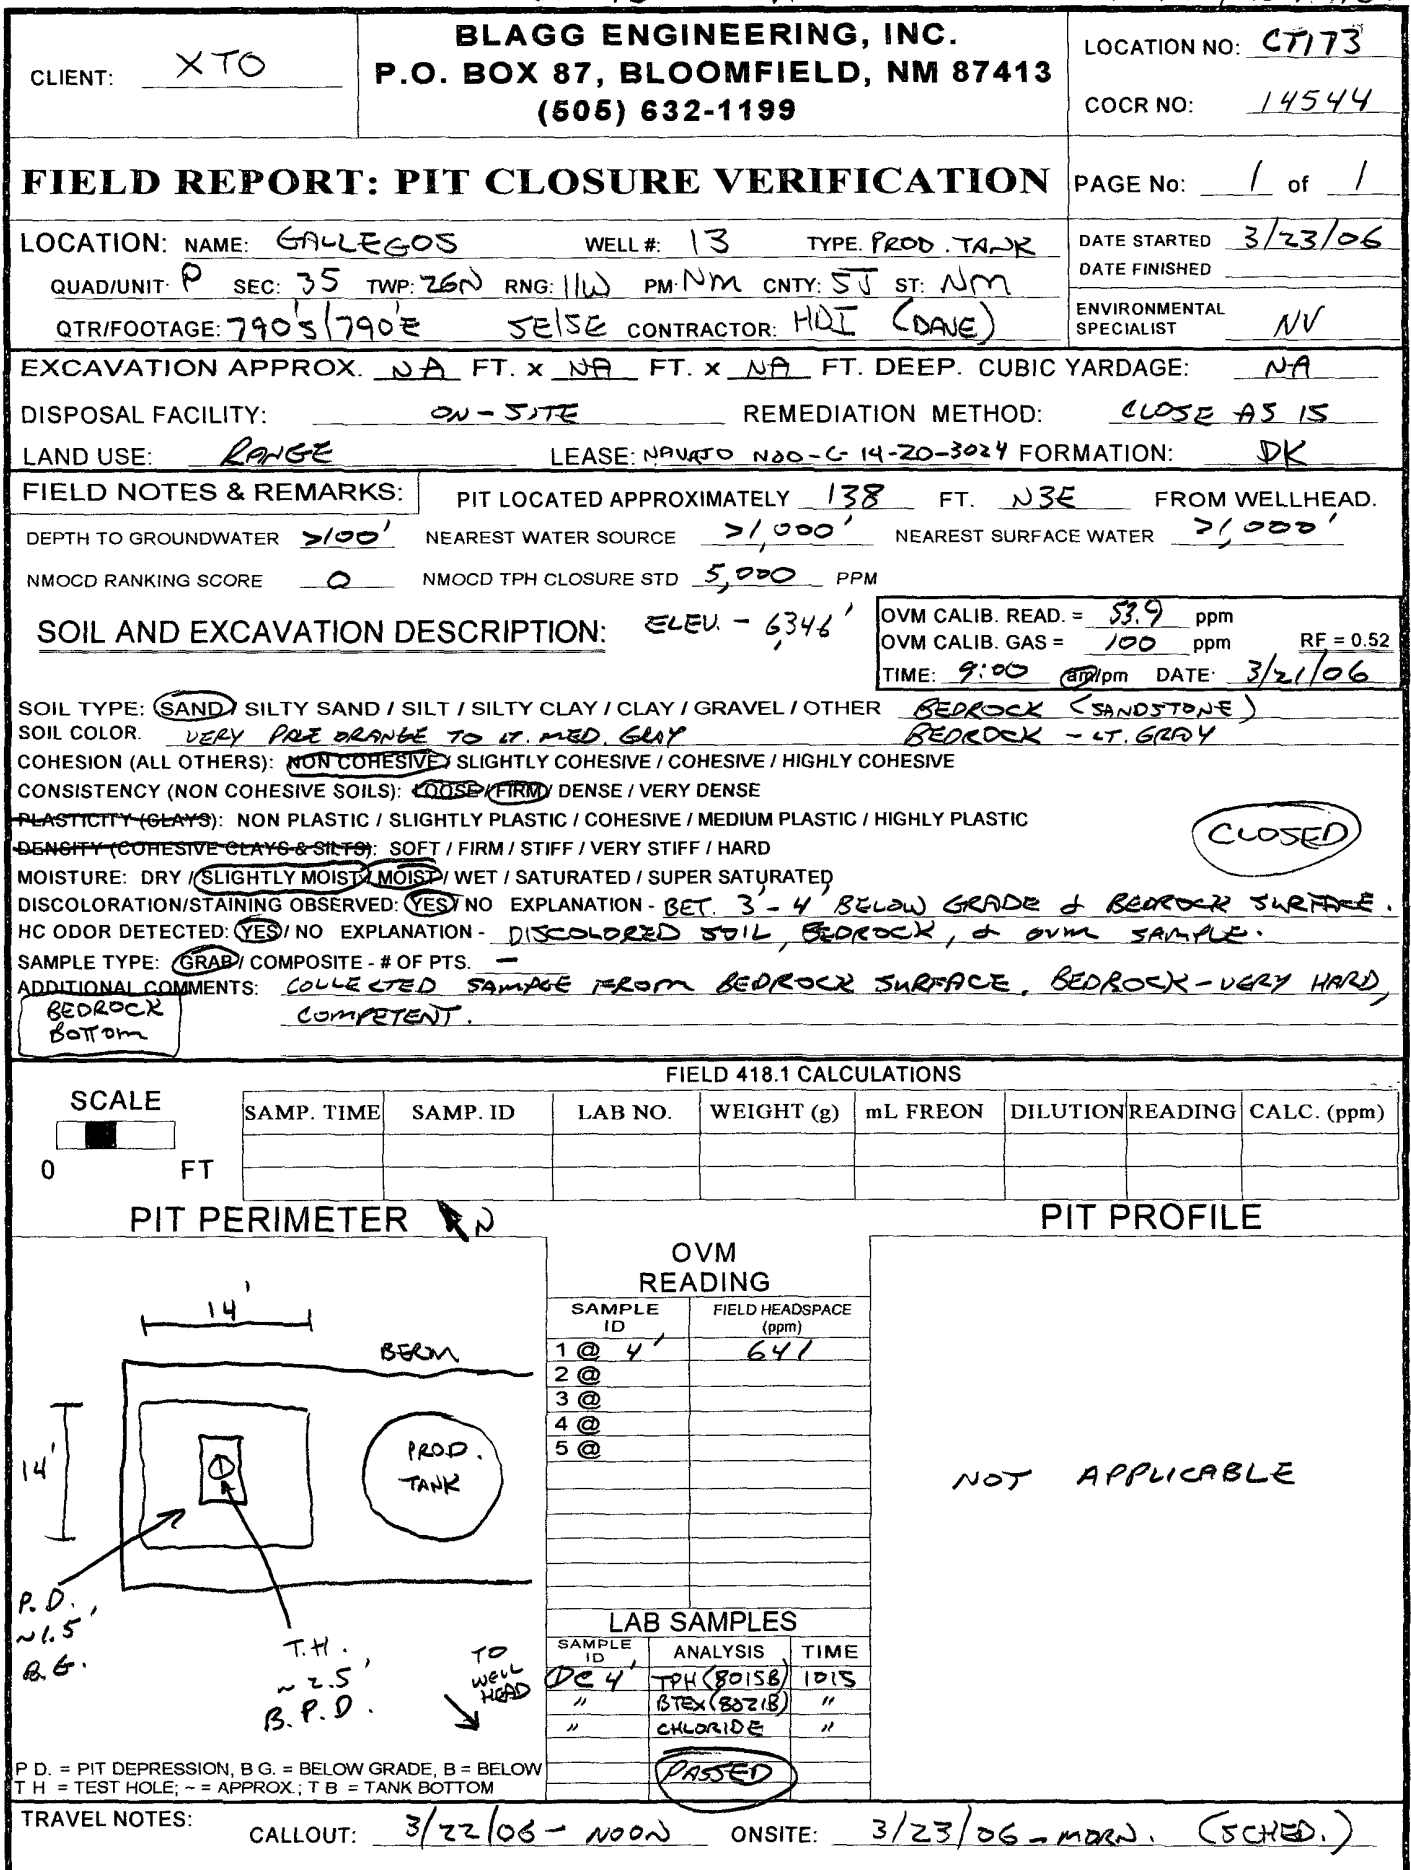 BLAGG ENGINEERING, INC.
CLIENT: XTO
P.O. BOX 87, BLOOMFIELD, NM 87413
(505) 632-1199
LOCATION NO: CT173
COCR NO: 14544
FIELD REPORT: PIT CLOSURE VERIFICATION
PAGE No: 1 of 1
LOCATION: NAME: GALLEGOS WELL #: 13 TYPE. PROD. TANK
QUAD/UNIT· P SEC: 35 TWP: 26N RNG: 11W PM· NM CNTY: SJ ST: NM
QTR/FOOTAGE: 790's/790'E SE/SE CONTRACTOR: HDI (DAVE)
DATE STARTED 3/23/06
DATE FINISHED
ENVIRONMENTAL
SPECIALIST NV
EXCAVATION APPROX. NA FT. x NA FT. x NA FT. DEEP. CUBIC YARDAGE: NA
DISPOSAL FACILITY: ON-SITE REMEDIATION METHOD: CLOSE AS IS
LAND USE: RANGE LEASE: NAVAJO NOO-C-14-20-3024 FORMATION: DK
FIELD NOTES & REMARKS: PIT LOCATED APPROXIMATELY 138 FT. N3E FROM WELLHEAD.
DEPTH TO GROUNDWATER >100' NEAREST WATER SOURCE >1,000' NEAREST SURFACE WATER >1,000'
NMOCD RANKING SCORE 0 NMOCD TPH CLOSURE STD 5,000 PPM
SOIL AND EXCAVATION DESCRIPTION: ELEV. - 6,346'
OVM CALIB. READ. = 53.9 ppm
OVM CALIB. GAS = 100 ppm RF = 0.52
TIME: 9:00 am/pm DATE· 3/21/06
SOIL TYPE: SAND / SILTY SAND / SILT / SILTY CLAY / CLAY / GRAVEL / OTHER BEDROCK (SANDSTONE)
SOIL COLOR. VERY PALE ORANGE TO LT. MED. GRAY BEDROCK - LT. GRAY
COHESION (ALL OTHERS): NON COHESIVE / SLIGHTLY COHESIVE / COHESIVE / HIGHLY COHESIVE
CONSISTENCY (NON COHESIVE SOILS): LOOSE / FIRM / DENSE / VERY DENSE
PLASTICITY (CLAYS): NON PLASTIC / SLIGHTLY PLASTIC / COHESIVE / MEDIUM PLASTIC / HIGHLY PLASTIC
DENSITY (COHESIVE CLAYS & SILTS): SOFT / FIRM / STIFF / VERY STIFF / HARD
CLOSED
MOISTURE: DRY / SLIGHTLY MOIST / MOIST / WET / SATURATED / SUPER SATURATED
DISCOLORATION/STAINING OBSERVED: YES / NO EXPLANATION - BET. 3'-4' BELOW GRADE & BEDROCK SURFACE.
HC ODOR DETECTED: YES / NO EXPLANATION - DISCOLORED SOIL, BEDROCK, & OVM SAMPLE.
SAMPLE TYPE: GRAB / COMPOSITE - # OF PTS. -
ADDITIONAL COMMENTS: COLLECTED SAMPLE FROM BEDROCK SURFACE. BEDROCK-VERY HARD,
COMPETENT.
BEDROCK
BOTTOM
FIELD 418.1 CALCULATIONS
SCALE
0 FT
SAMP. TIME SAMP. ID LAB NO. WEIGHT (g) mL FREON DILUTION READING CALC. (ppm)
PIT PERIMETER N
PIT PROFILE
14'
BERM
14'
PROD.
TANK
P.D.
~1.5'
B.G.
T.H.
~2.5'
B.P.D.
TO
WELL
HEAD
OVM
READING
SAMPLE ID FIELD HEADSPACE (ppm)
1 @ 4' 641
2 @
3 @
4 @
5 @
NOT APPLICABLE
LAB SAMPLES
SAMPLE ID ANALYSIS TIME
①C 4' TPH (8015B) 1015
" BTEX (8021B) "
" CHLORIDE "
PASSED
P D. = PIT DEPRESSION, B G. = BELOW GRADE, B = BELOW
T H = TEST HOLE; ~ = APPROX.; T B = TANK BOTTOM
TRAVEL NOTES: CALLOUT: 3/22/06 - NOON ONSITE: 3/23/06 - MORN. (SCHED.)